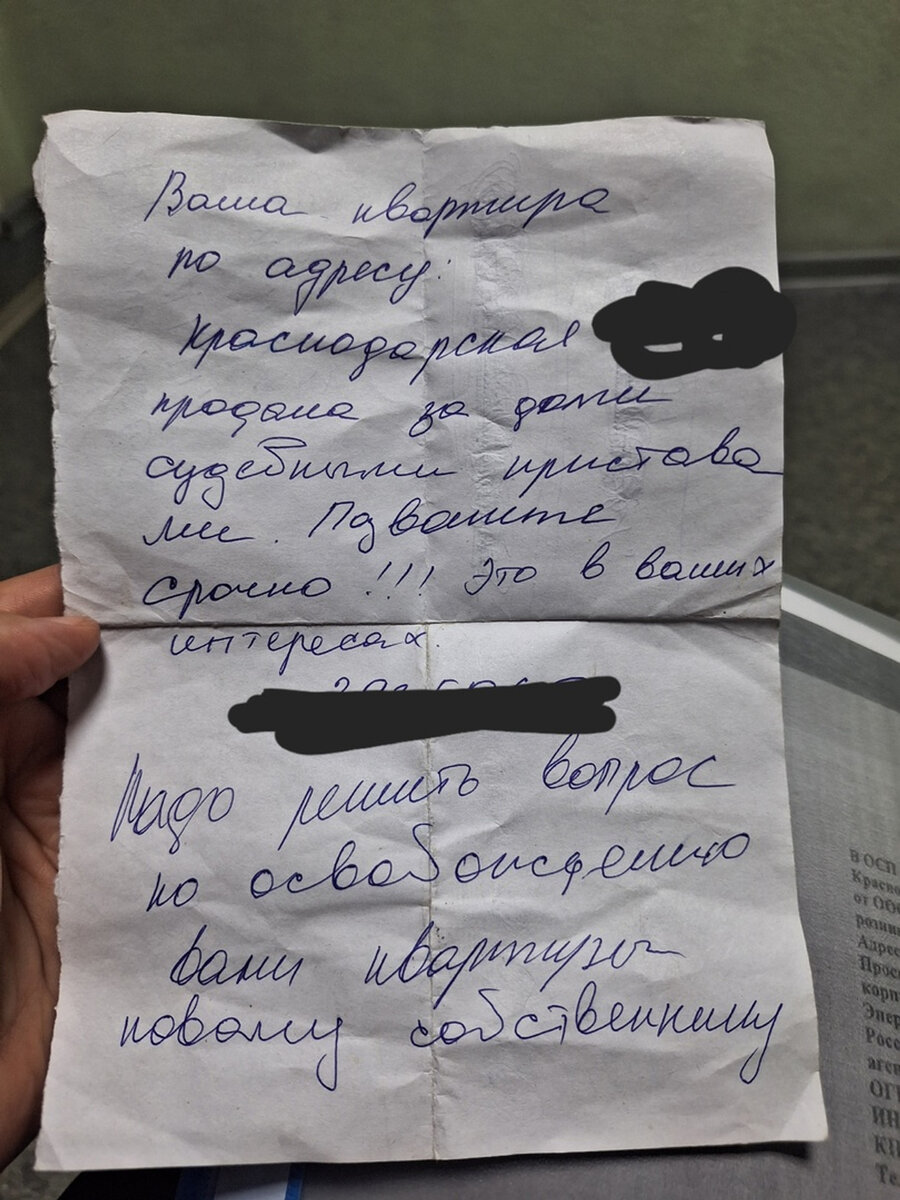 Ваша квартира
по адресу:
Краснодарская
продана за долги
судебными пристава
ми. Позвоните
срочно!!! Это в ваших
интересах
Надо решить вопрос
по освобождению
вами квартиры
новому собственнику
В ОСП
Красно
от ОБ
розни
Адрес
Прос
корп
Энер
Росс
аген
ОГ
ИН
КП
Те